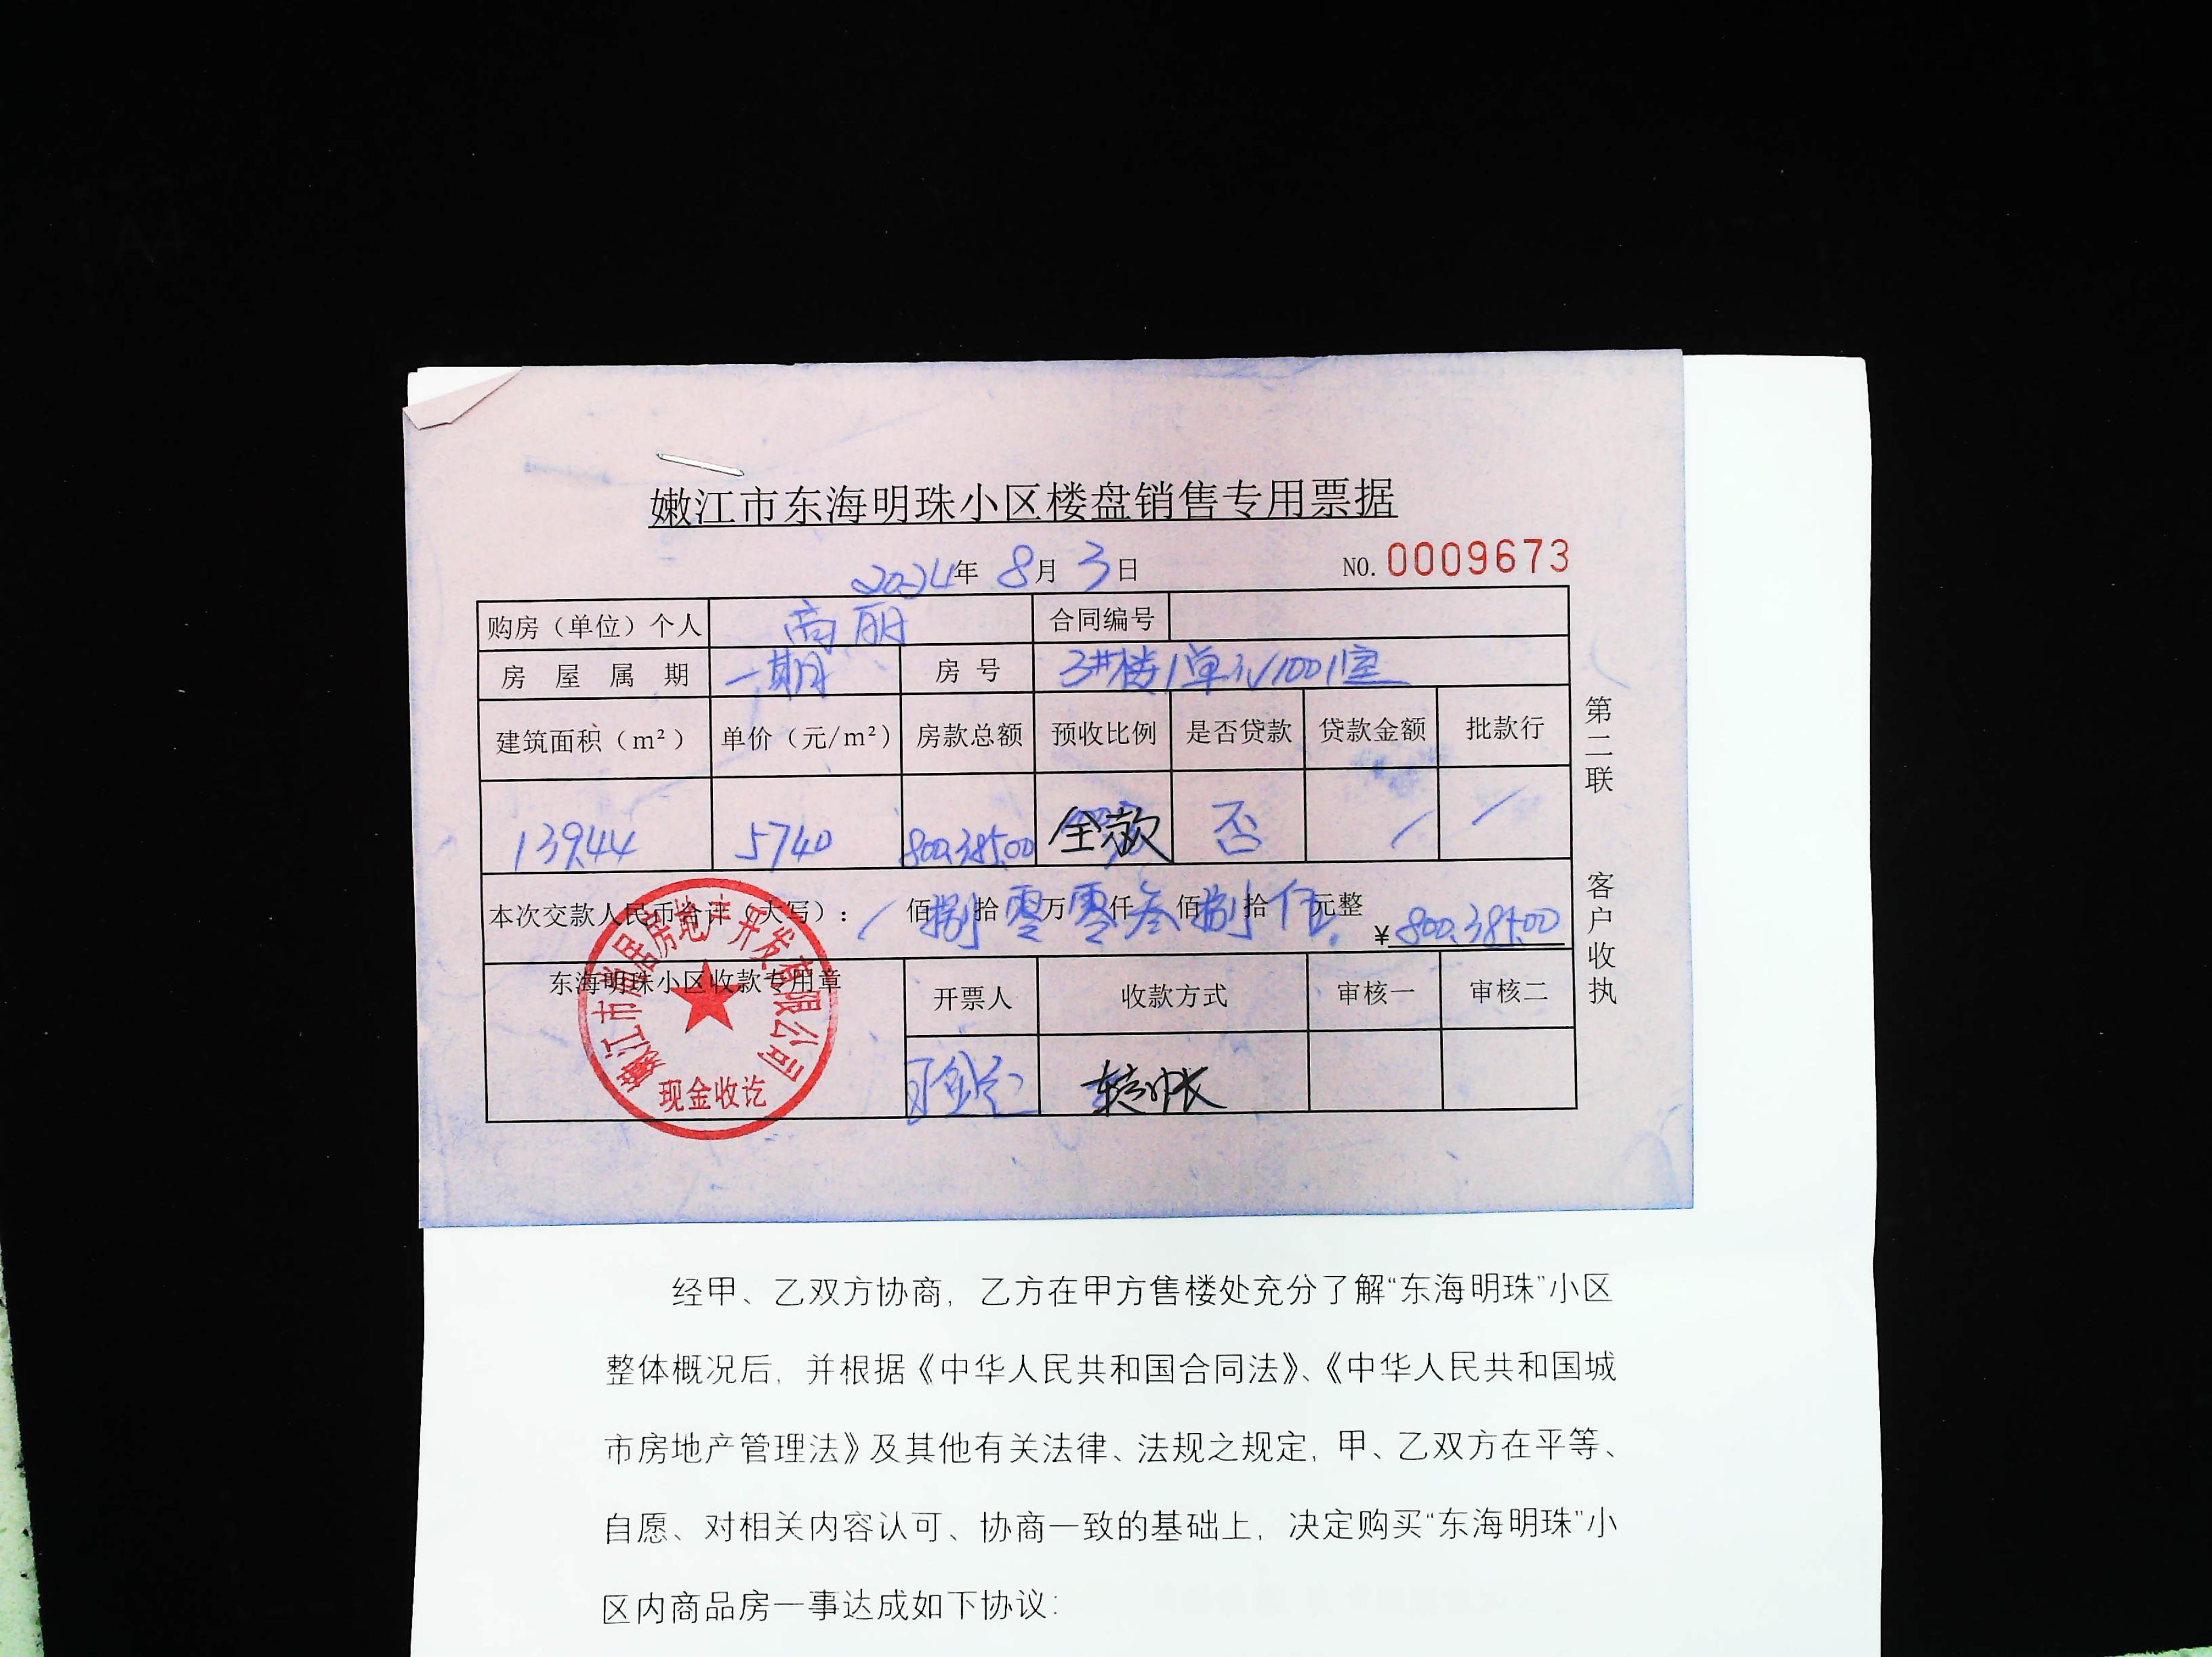 嫩江市东海明珠小区楼盘销售专用票据
2024年 8月 3日 NO. 0009673
购房（单位）个人 商丽 合同编号
房屋属期 一期 房号 3#楼1单元1001室
建筑面积（m²） 单价（元/m²） 房款总额 预收比例 是否贷款 贷款金额 批款行
139.44 5740 800,385.00 全款 否 / /
本次交款人民币合计（大写）： / 佰捌拾零万零仟叁佰捌拾伍元整 ¥800,385.00
东海明珠小区收款专用章 开票人 收款方式 审核一 审核二
转帐
房地产开发有限公司
现金收讫
第二联
客户收执
经甲、乙双方协商，乙方在甲方售楼处充分了解“东海明珠”小区
整体概况后，并根据《中华人民共和国合同法》、《中华人民共和国城
市房地产管理法》及其他有关法律、法规之规定，甲、乙双方在平等、
自愿、对相关内容认可、协商一致的基础上，决定购买“东海明珠”小
区内商品房一事达成如下协议：